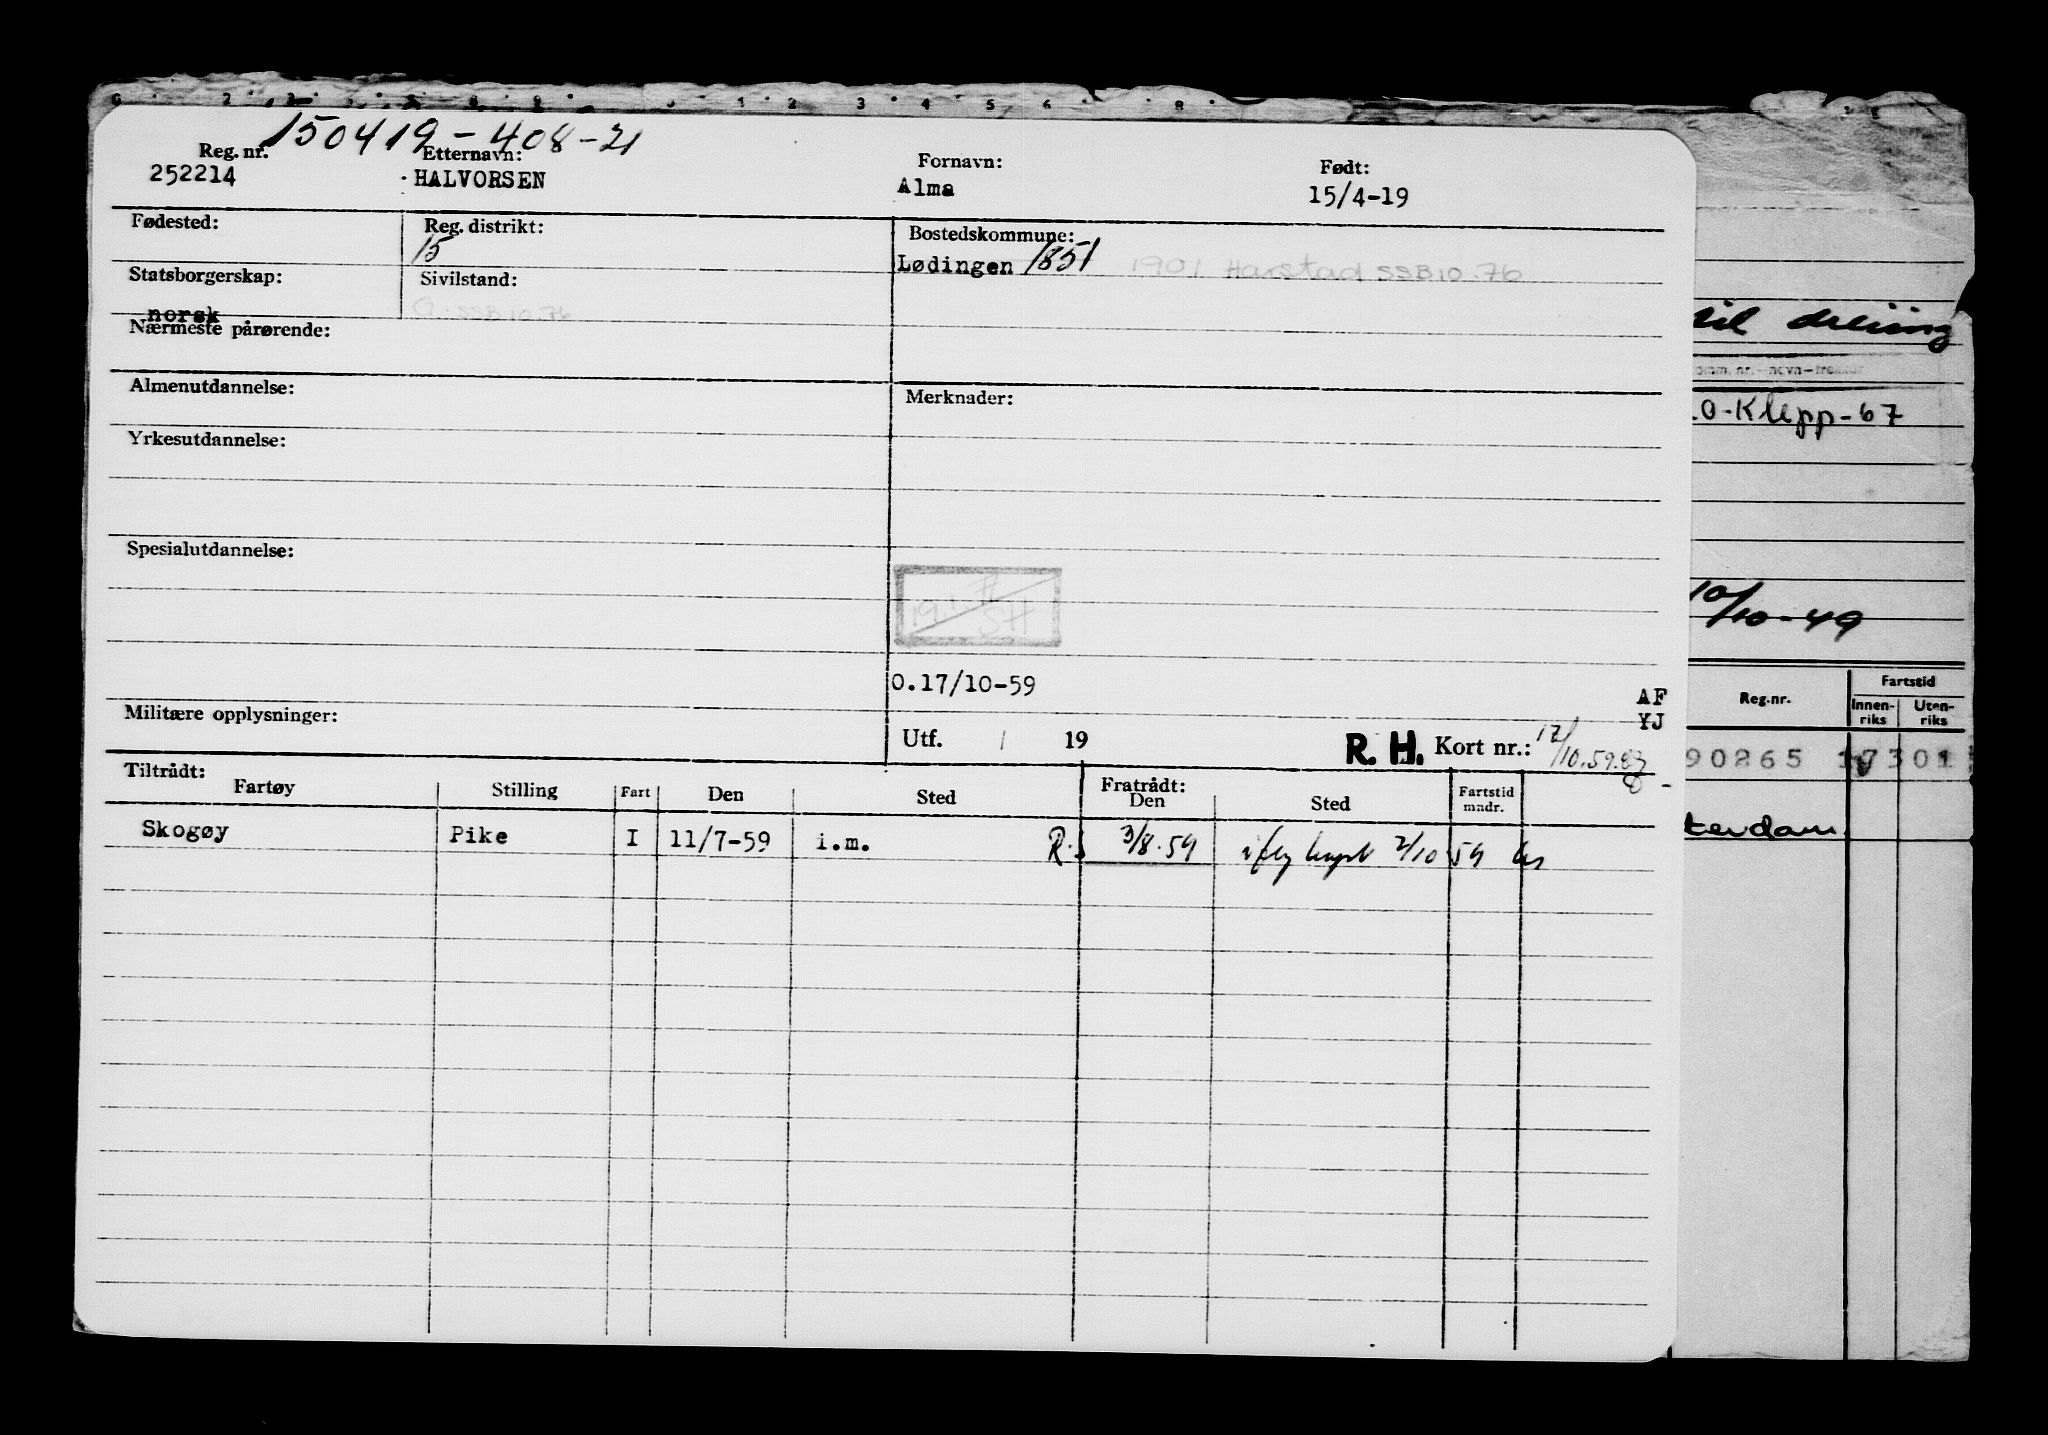 150419-408-21
Reg. nr. Etternavn: Fornavn: Født:
252214 HALVORSEN Alma 15/4-19
Fødested: Reg. distrikt: Bostedskommune:
15 Lødingen 1851 1901 Harstad SSB10.76
Statsborgerskap: Sivilstand:
norsk G. SSB 10.76
Nærmeste pårørende:
Almenutdannelse: Merknader:
Yrkesutdannelse:
Spesialutdannelse:
SH
0.17/10-59
AF
Militære opplysninger: YJ
Utf. / 19 R. H. Kort nr.: 17/10.59.
Tiltrådt: Fratrådt:
Fartøy Stilling Fart Den Sted Den Sted Fartstid mndr.
Skogøy Pike I 11/7-59 i.m. R.S 3/8.59 2/10 59
til
nr.-navn-
0-Klepp-67
10/10-49
Reg.nr. Fartstid
Innen-riks Uten-riks
90265